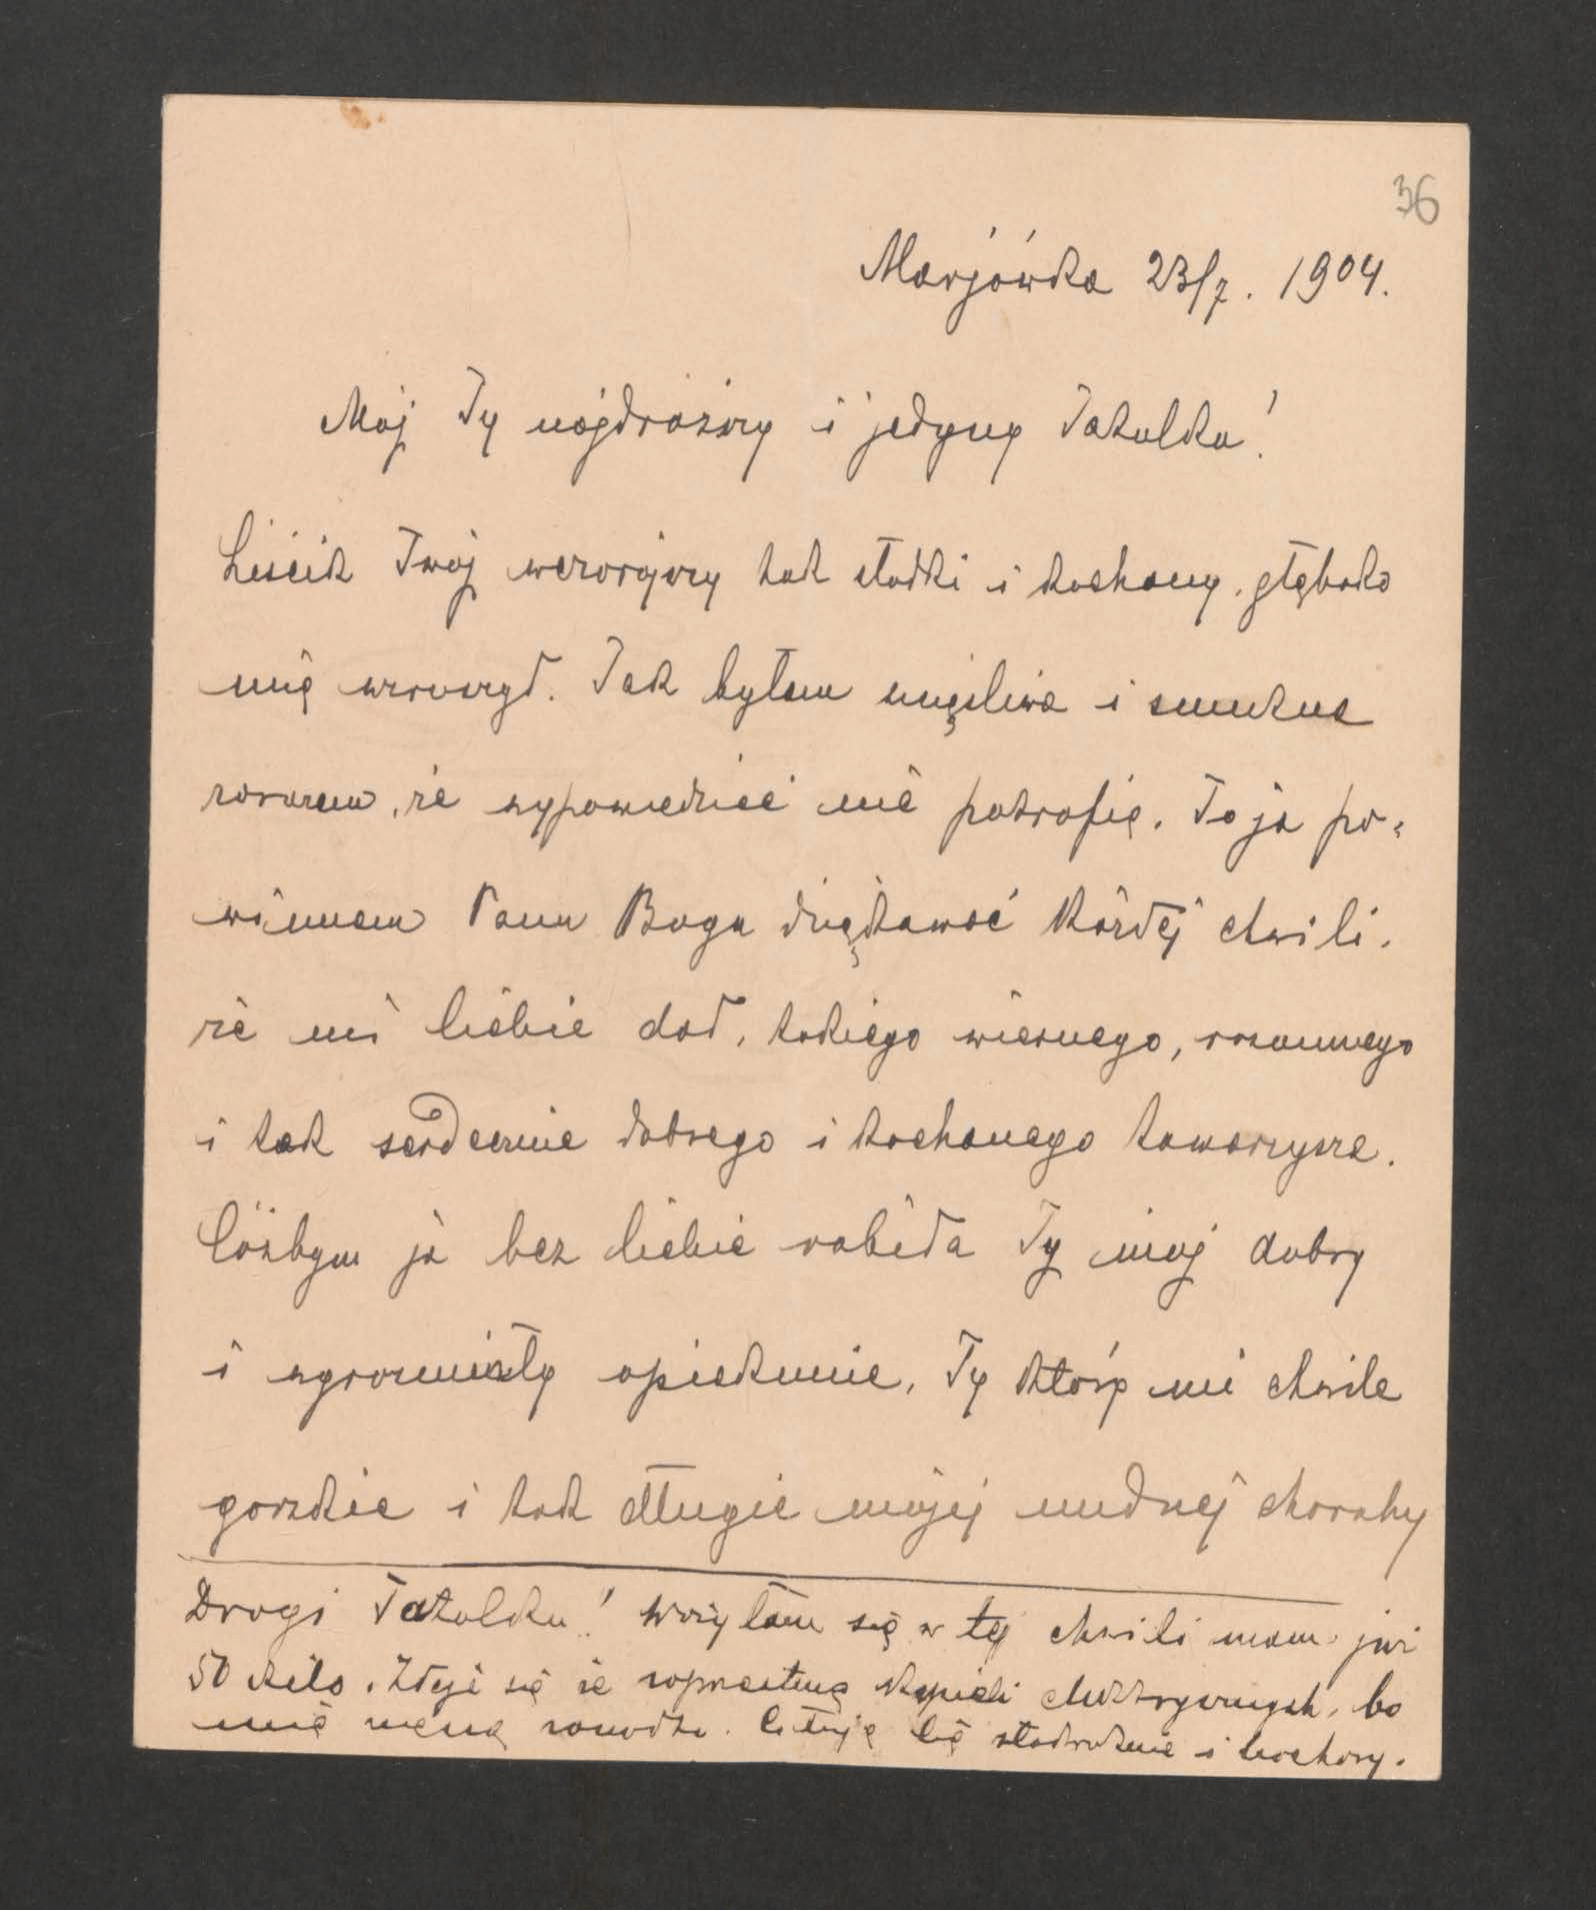 36
Marjówka 23/7. 1904.
Mój Ty najdroższy i jedyny Tatulku!
Liścik Twój wczorajszy tak słodki i kochany, głęboko
mię wzruszył. Tak byłam szczęśliwa i smutna
razem, że wypowiedzieć nie potrafię. To ja po-
winnam Panu Bogu dziękować każdej chwili,
że mi Ciebie dał, takiego wiernego, rozumnego
i tak serdecznie dobrego i kochanego towarzysza.
Cóżbym ja bez Ciebie robiła Ty mój dobry
i wyrozumiały opiekunie, Ty który mi chwile
gorzkie i tak długie mojej nudnej choroby
Drogi Tatulku! Ważyłam się w tej chwili mam już
50 kilo. Zdaje się że zaprzestanę kąpieli elektrycznych, bo
mię męczą. Całuję Cię i kochany.